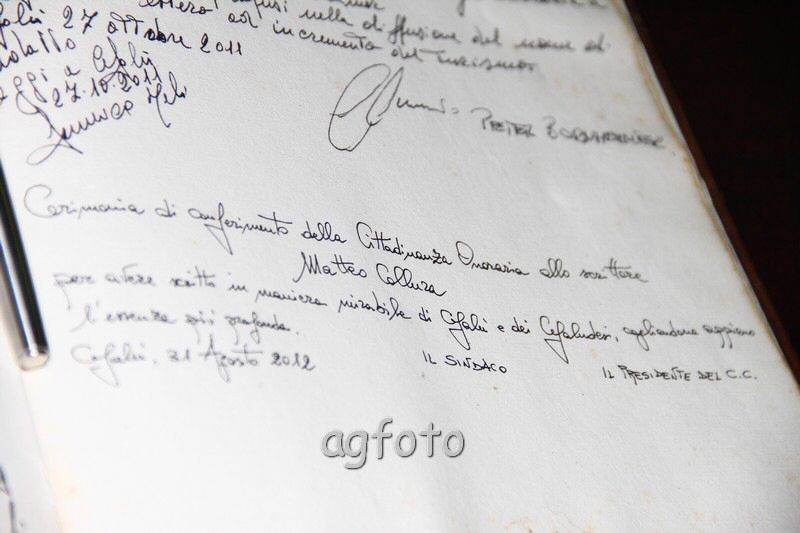 nella diffusione del nome di
Cefalù 27 ottobre 2011
ed incremento del turismo
oggi a Cefalù
27.10.2011
PIETER
Cerimonia di conferimento della Cittadinanza Onoraria allo scrittore
Matteo Collura
per avere scritto in maniera mirabile di Cefalù e dei Cefaludesi, cogliendone appieno
l'essenza più profonda.
Cefalù, 31 Agosto 2012
IL SINDACO
IL PRESIDENTE DEL C.C.
agfoto